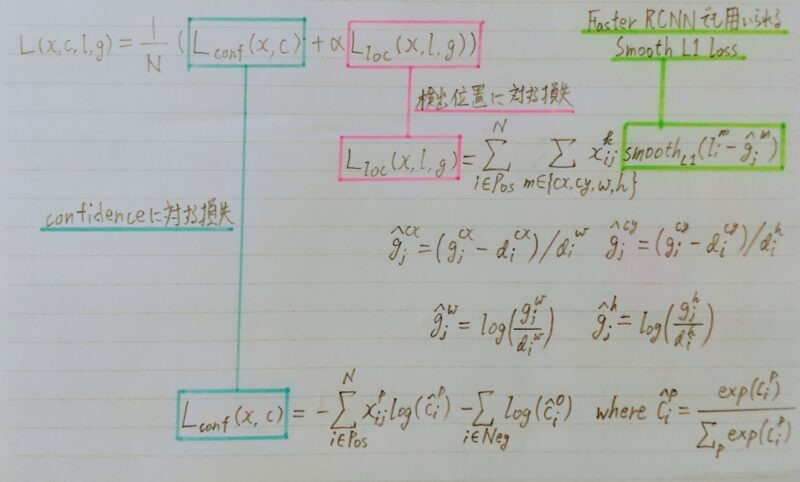 Faster RCNNでも用いられる
Smooth L1 loss
L(x,c,l,g) = 1/N (L_conf(x,c) + α L_loc(x,l,g))
検出位置に対する損失
L_loc(x,l,g) = Σ_{i∈Pos}^{N} Σ_{m∈{cx,cy,w,h}} x_{ij}^{k} smooth_{L1}(l_i^m - ĝ_j^m)
confidenceに対する損失
ĝ_j^{cx} = (g_j^{cx} - d_i^{cx})/d_i^w ĝ_j^{cy} = (g_j^{cy} - d_i^{cy})/d_i^h
ĝ_j^w = log(g_j^w/d_i^w) ĝ_j^h = log(g_j^h/d_i^h)
L_conf(x,c) = -Σ_{i∈Pos}^{N} x_{ij}^p log(ĉ_i^p) - Σ_{i∈Neg} log(ĉ_i^0) where ĉ_i^p = exp(c_i^p)/Σ_p exp(c_i^p)